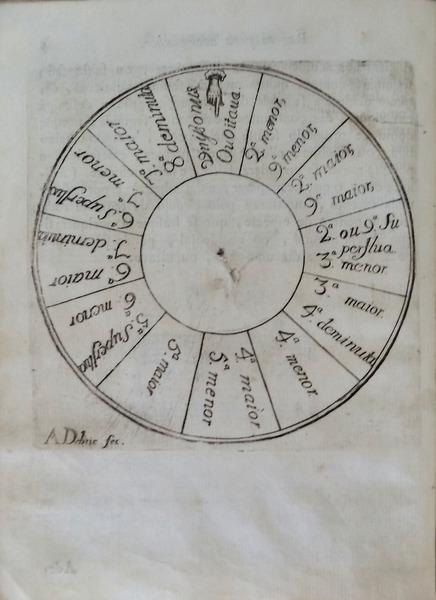 Ou Oitaua.
2ª menor,
9ª menor,
2ª maior,
9ª maior,
2ª ou 9ª Su
perflua
3ª menor
3ª maior.
4ª deminuta
4ª menor
4ª maior
5ª menor
5ª maior
5ª Superflua
6ª menor
6ª maior
7ª deminuta
6ª Superflua
7ª menor
7ª maior
8ª deminuta
fec.